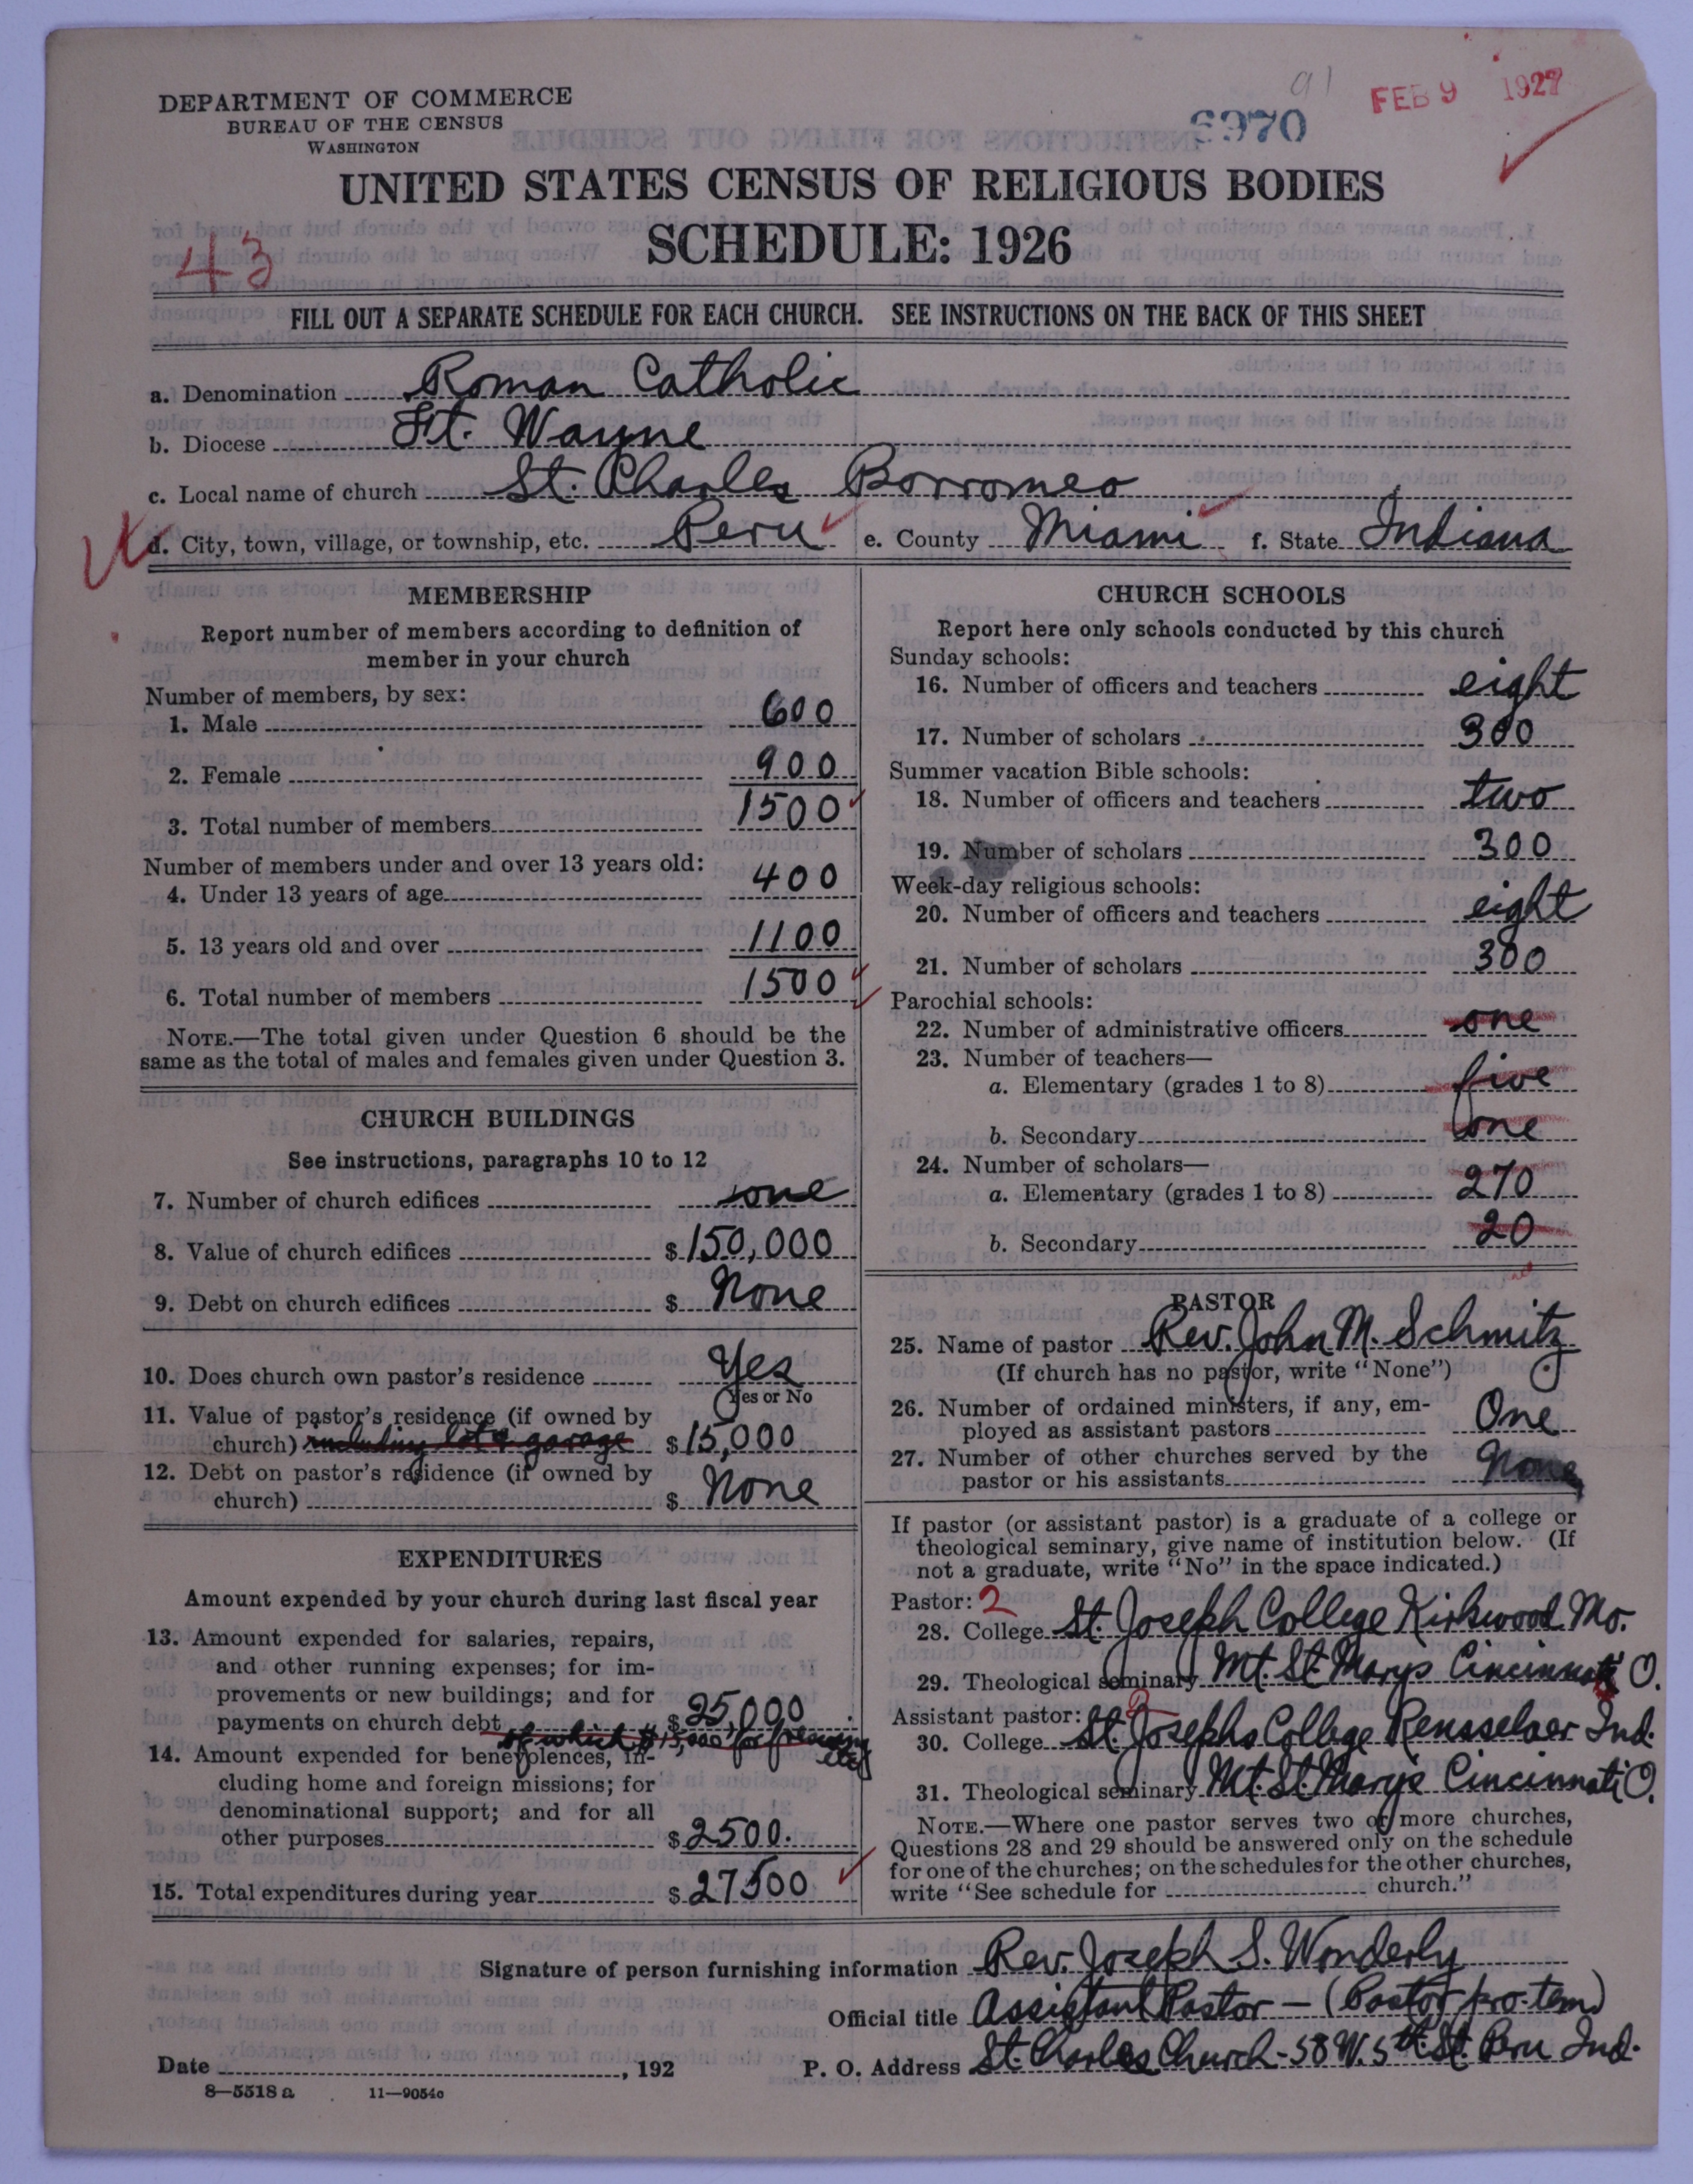 DEPARTMENT OF COMMERCE
BUREAU OF THE CENSUS
WASHINGTON
91
FEB 9 1927
6970
UNITED STATES CENSUS OF RELIGIOUS BODIES
SCHEDULE: 1926
43
FILL OUT A SEPARATE SCHEDULE FOR EACH CHURCH. SEE INSTRUCTIONS ON THE BACK OF THIS SHEET
a. Denomination Roman Catholic
b. Diocese Ft. Wayne
c. Local name of church St. Charles Borromeo
d. City, town, village, or township, etc. Peru e. County Miami f. State Indiana
MEMBERSHIP
Report number of members according to definition of
member in your church
Number of members, by sex:
1. Male 600
2. Female 900
3. Total number of members 1500
Number of members under and over 13 years old:
4. Under 13 years of age 400
5. 13 years old and over 1100
6. Total number of members 1500
NOTE.—The total given under Question 6 should be the
same as the total of males and females given under Question 3.
CHURCH BUILDINGS
See instructions, paragraphs 10 to 12
7. Number of church edifices one
8. Value of church edifices $150,000
9. Debt on church edifices $ None
10. Does church own pastor's residence Yes
(Yes or No
11. Value of pastor's residence (if owned by
church) including lot & garage $15,000
12. Debt on pastor's residence (if owned by
church) $ None
EXPENDITURES
Amount expended by your church during last fiscal year
13. Amount expended for salaries, repairs,
and other running expenses; for im-
provements or new buildings; and for
payments on church debt $25,000
of which $15,000 for
14. Amount expended for benevolences, in-
cluding home and foreign missions; for
denominational support; and for all
other purposes $2500.
15. Total expenditures during year $27500
CHURCH SCHOOLS
Report here only schools conducted by this church
Sunday schools:
16. Number of officers and teachers eight
17. Number of scholars 300
Summer vacation Bible schools:
18. Number of officers and teachers two
19. Number of scholars 300
Week-day religious schools:
20. Number of officers and teachers eight
21. Number of scholars 300
Parochial schools:
22. Number of administrative officers one
23. Number of teachers—
a. Elementary (grades 1 to 8) five
b. Secondary one
24. Number of scholars—
a. Elementary (grades 1 to 8) 270
b. Secondary 20
PASTOR
25. Name of pastor Rev. John M. Schmitz
(If church has no pastor, write "None")
26. Number of ordained ministers, if any, em-
ployed as assistant pastors One
27. Number of other churches served by the
pastor or his assistants None
If pastor (or assistant pastor) is a graduate of a college or
theological seminary, give name of institution below. (If
not a graduate, write "No" in the space indicated.)
Pastor: 2
28. College St. Joseph College Kirkwood Mo.
29. Theological seminary Mt. St. Marys Cincinnati O.
Assistant pastor: 2
30. College St. Josephs College Rensselaer Ind.
31. Theological seminary Mt. St. Marys Cincinnati O.
NOTE.—Where one pastor serves two or more churches,
Questions 28 and 29 should be answered only on the schedule
for one of the churches; on the schedules for the other churches,
write "See schedule for church."
Signature of person furnishing information Rev. Joseph S. Wonderly
Official title Assistant Pastor — (Pastor pro. tem)
Date , 192 P. O. Address St. Charles Church - 58 W. 5th St. Peru Ind.
8—5518 a 11—9054c